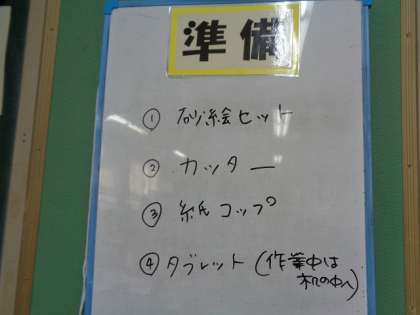 準備
① 砂絵セット
② カッター
③ 紙コップ
④ タブレット (作業中は
机の中へ)